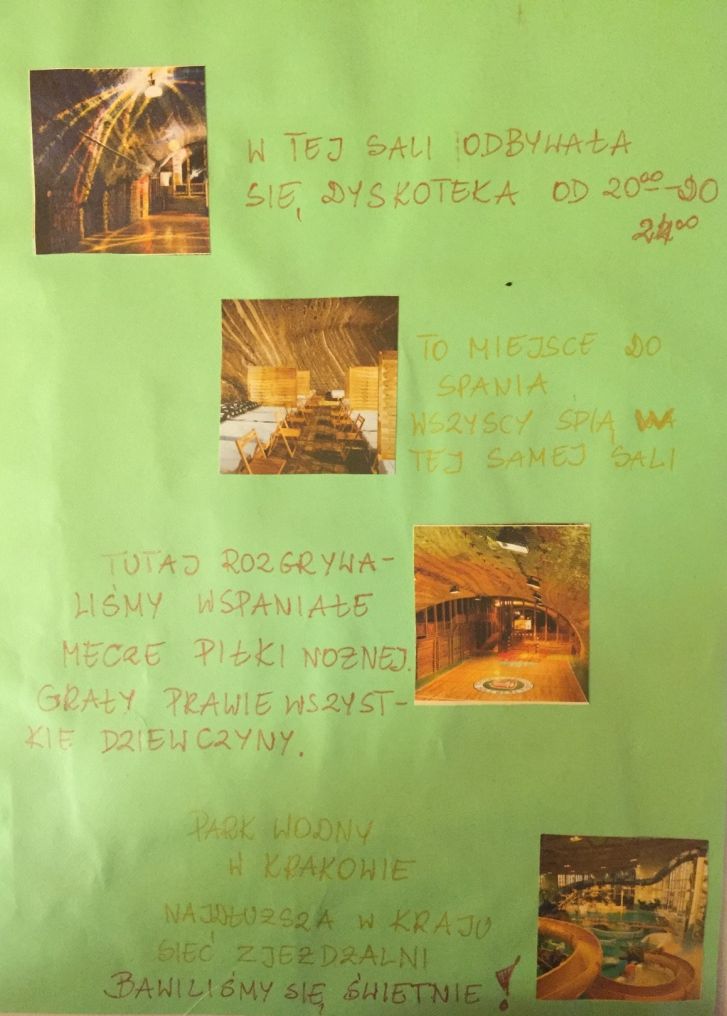 W TEJ SALI ODBYWAŁA
SIĘ DYSKOTEKA OD 20⁰⁰-DO
24⁰⁰
TO MIEJSCE DO
SPANIA
WSZYSCY ŚPIĄ W
TEJ SAMEJ SALI
TUTAJ ROZGRYWA-
LIŚMY WSPANIAŁE
MECZE PIŁKI NOŻNEJ.
GRAŁY PRAWIE WSZYST-
KIE DZIEWCZYNY.
PARK WODNY
W KRAKOWIE
NAJDŁUŻSZA W KRAJU
SIEĆ ZJEŻDŻALNI
BAWILIŚMY SIĘ ŚWIETNIE!